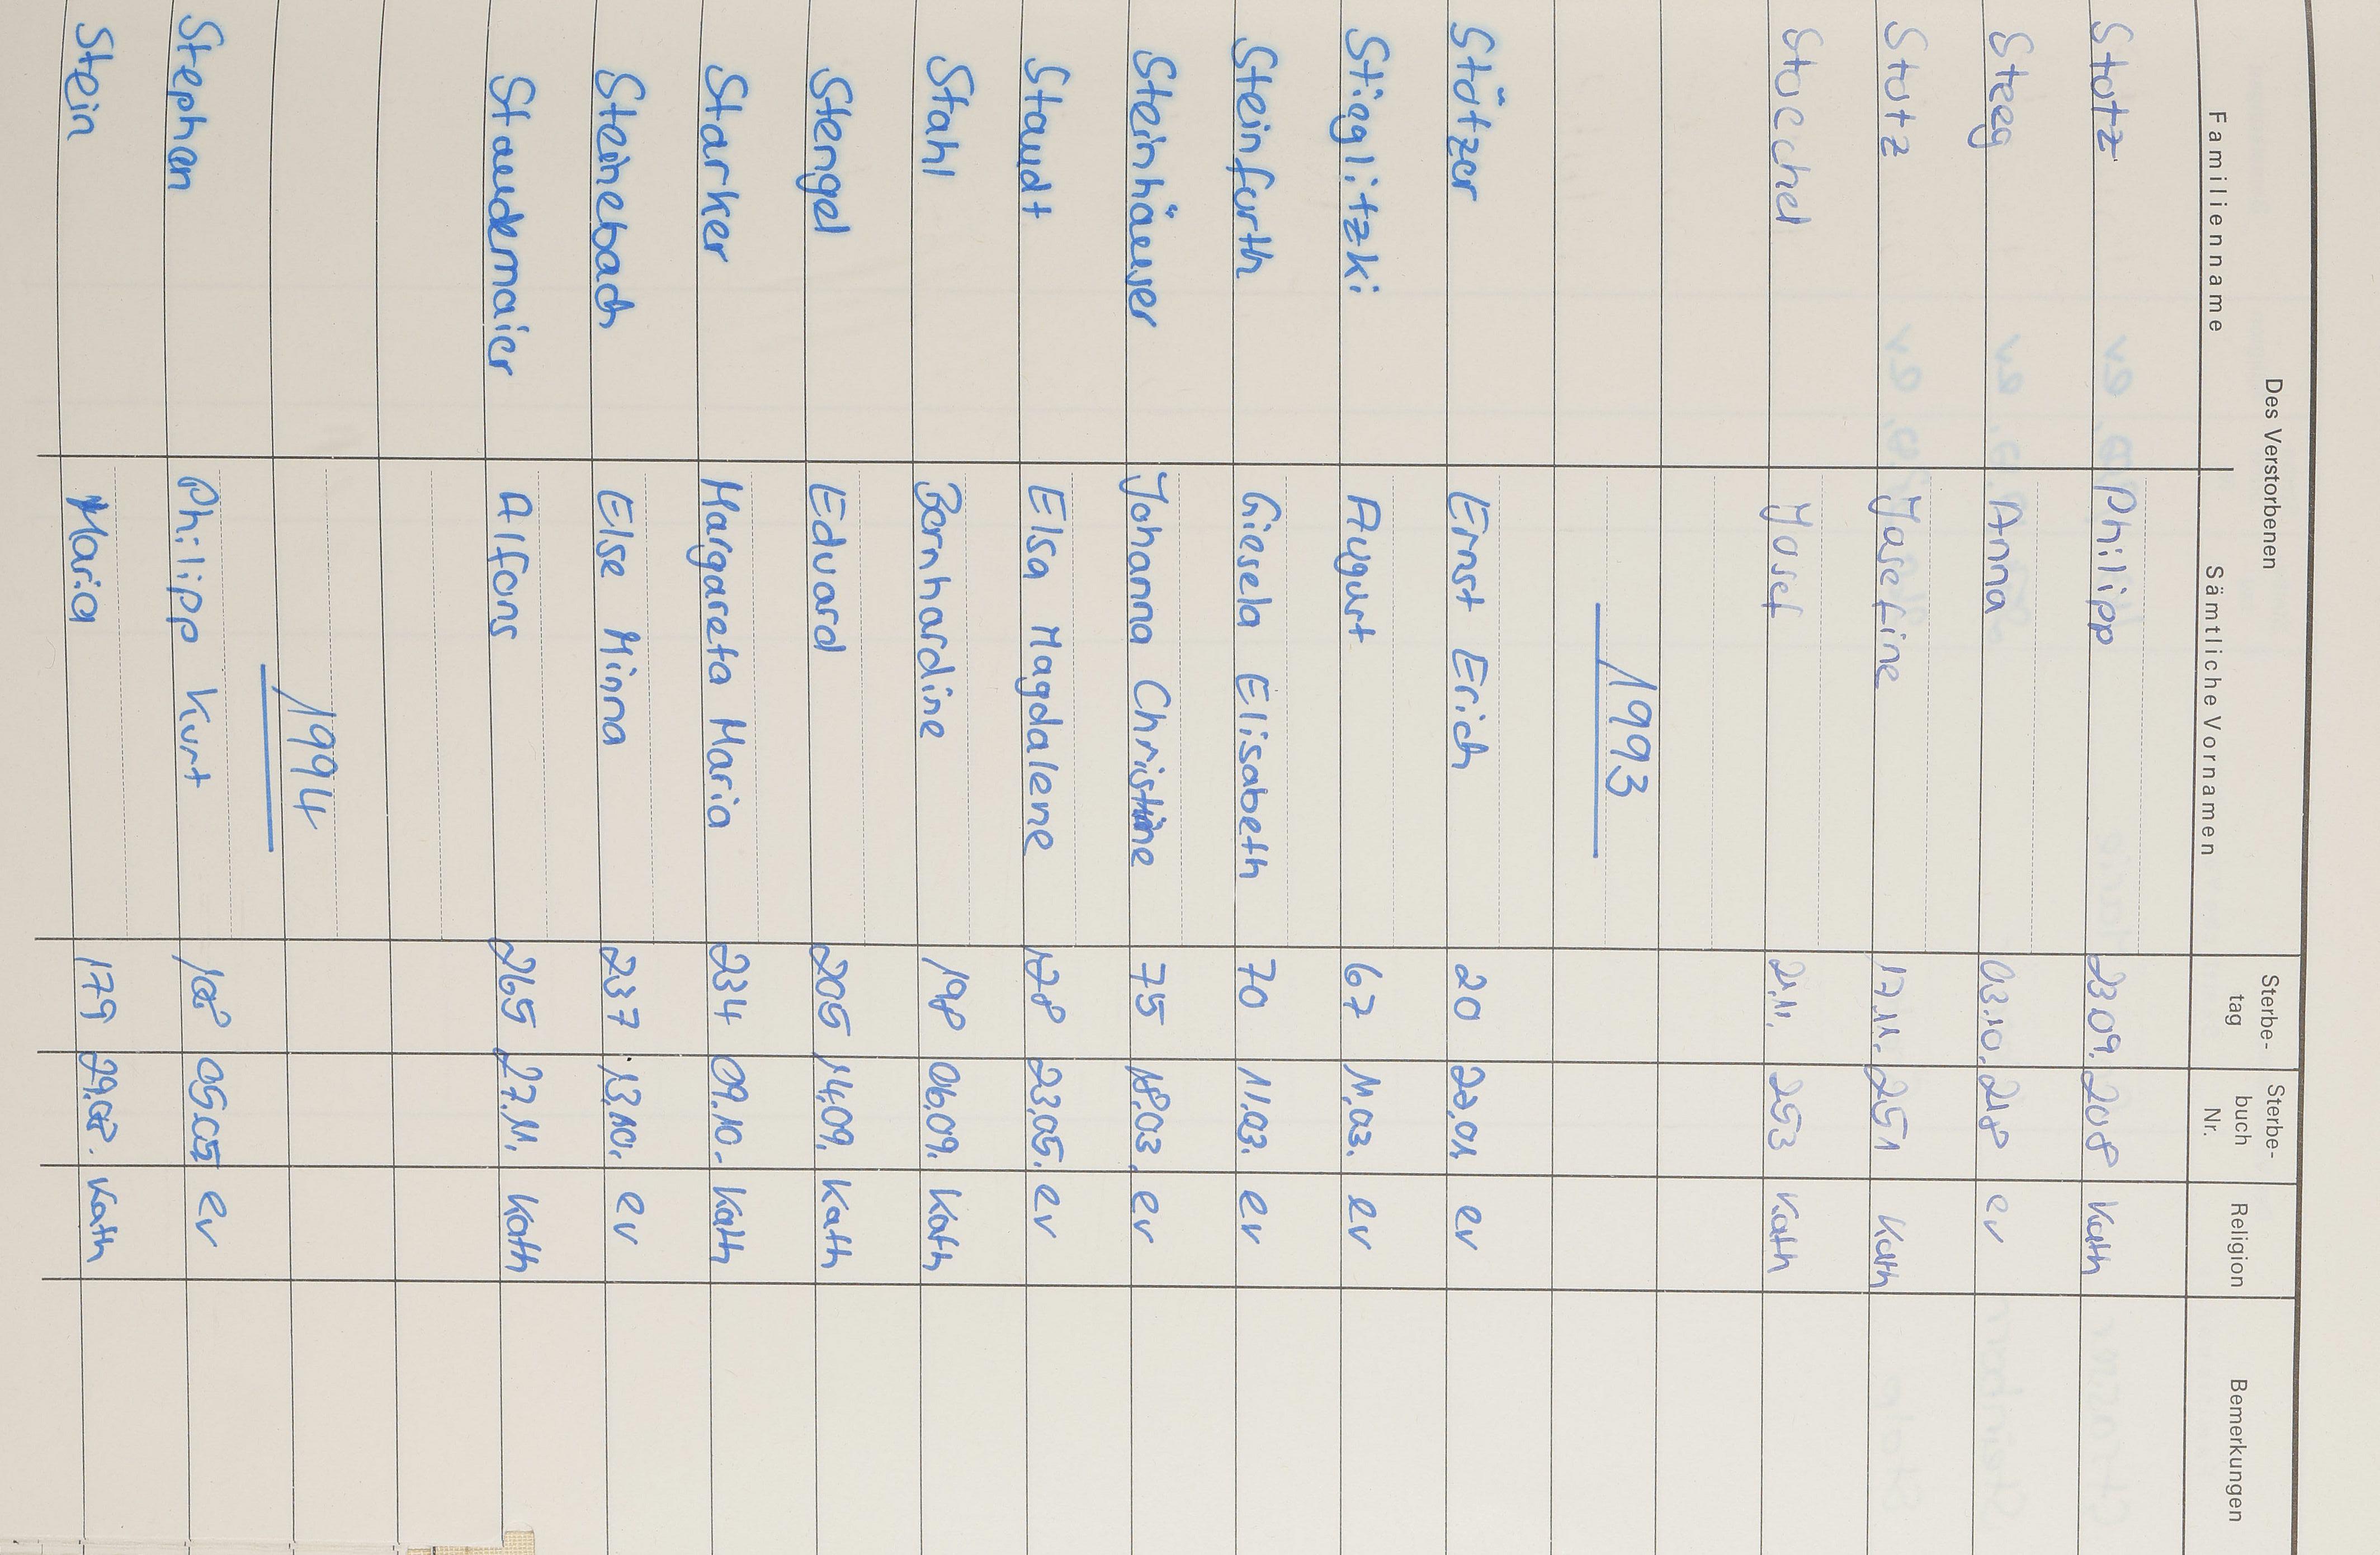 Des Verstorbenen
Familienname Sämtliche Vornamen Sterbe-tag Sterbe-buch Nr. Religion Bemerkungen
Stotz Philipp 23.09. 208 Kath
Steeg Anna 03.10. 218 ev
Stotz Josefine 17.11. 251 Kath
Stoechel Josef 21.11. 253 Kath
1993
Stötzer Ernst Erich 20 22.01. ev
Stieglitzki August 67 11.03. ev
Steinfurth Giesela Elisabeth 70 11.03. ev
Steinhäuser Johanna Christine 75 18.03. ev
Staudt Elsa Magdalene 128 23.05. ev
Stahl Bernhardine 198 06.09. Kath
Stengel Eduard 205 14.09. Kath
Starker Margareta Maria 234 09.10. Kath
Steinebach Else Minna 237 13.10. ev
Staudenmaier Alfons 265 27.11. Kath
1994
Stephan Philipp Kurt 05.05 ev
Stein Maria 179 Kath